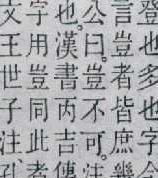 登也多也字
言豈者皆庶幾
公曰。豈不可。注
也。漢書丙吉傳
字用豈同此者
文王世子注、孔